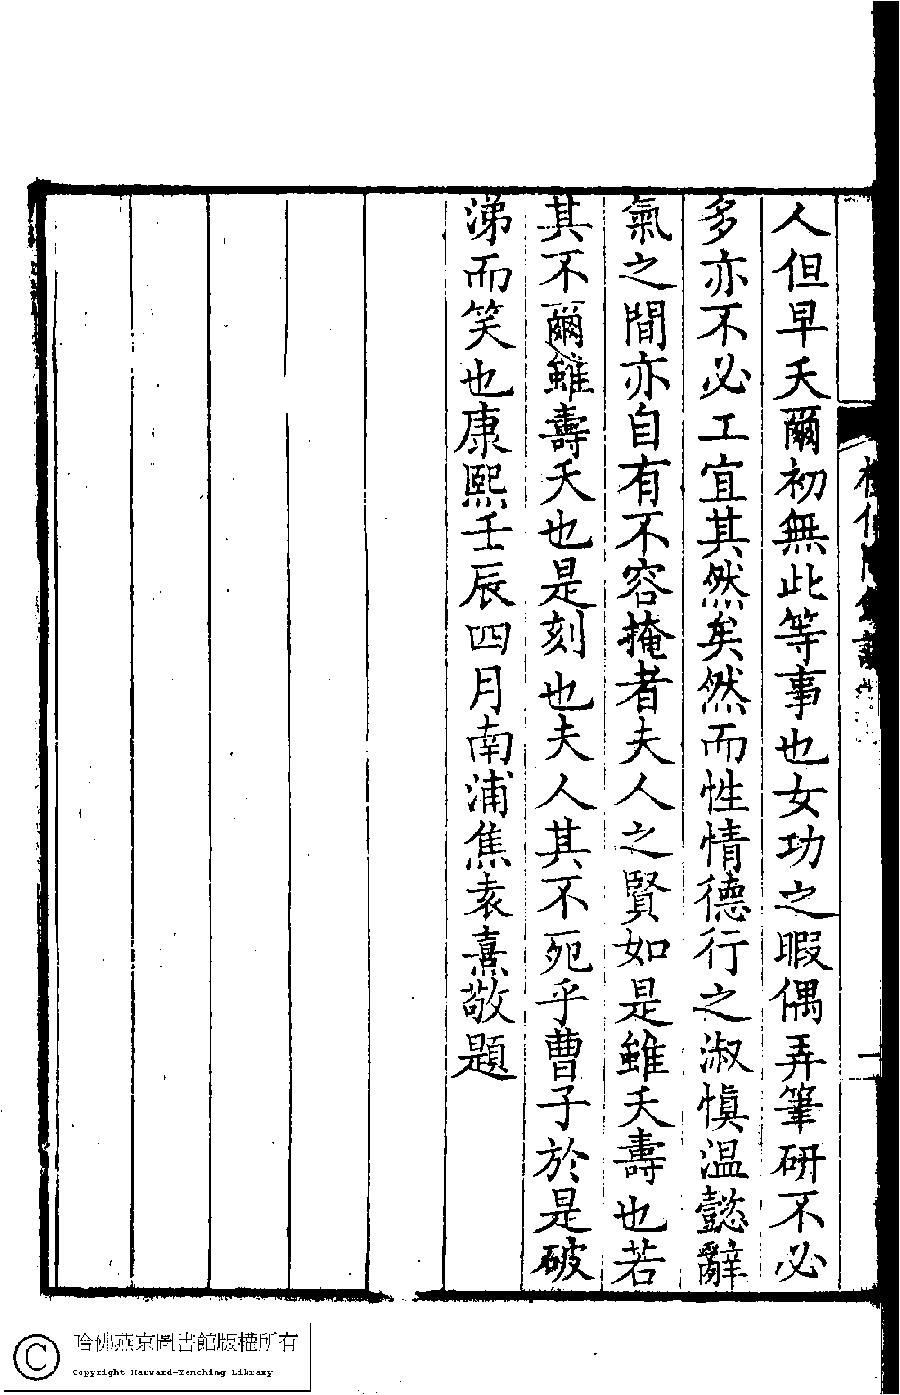 人但早夭爾初無此等事也女功之暇偶弄筆研不必
多亦不必工宜其然矣然而性情德行之淑慎温懿辭
氣之間亦自有不容掩者夫人之賢如是雖夭壽也若
其不爾雖壽夭也是刻也夫人其不死乎曹子於是破
涕而笑也康熙壬辰四月南浦焦袁熹敬題
一
哈佛燕京圖書館版權所有
Copyright Harvard-Yenching Library